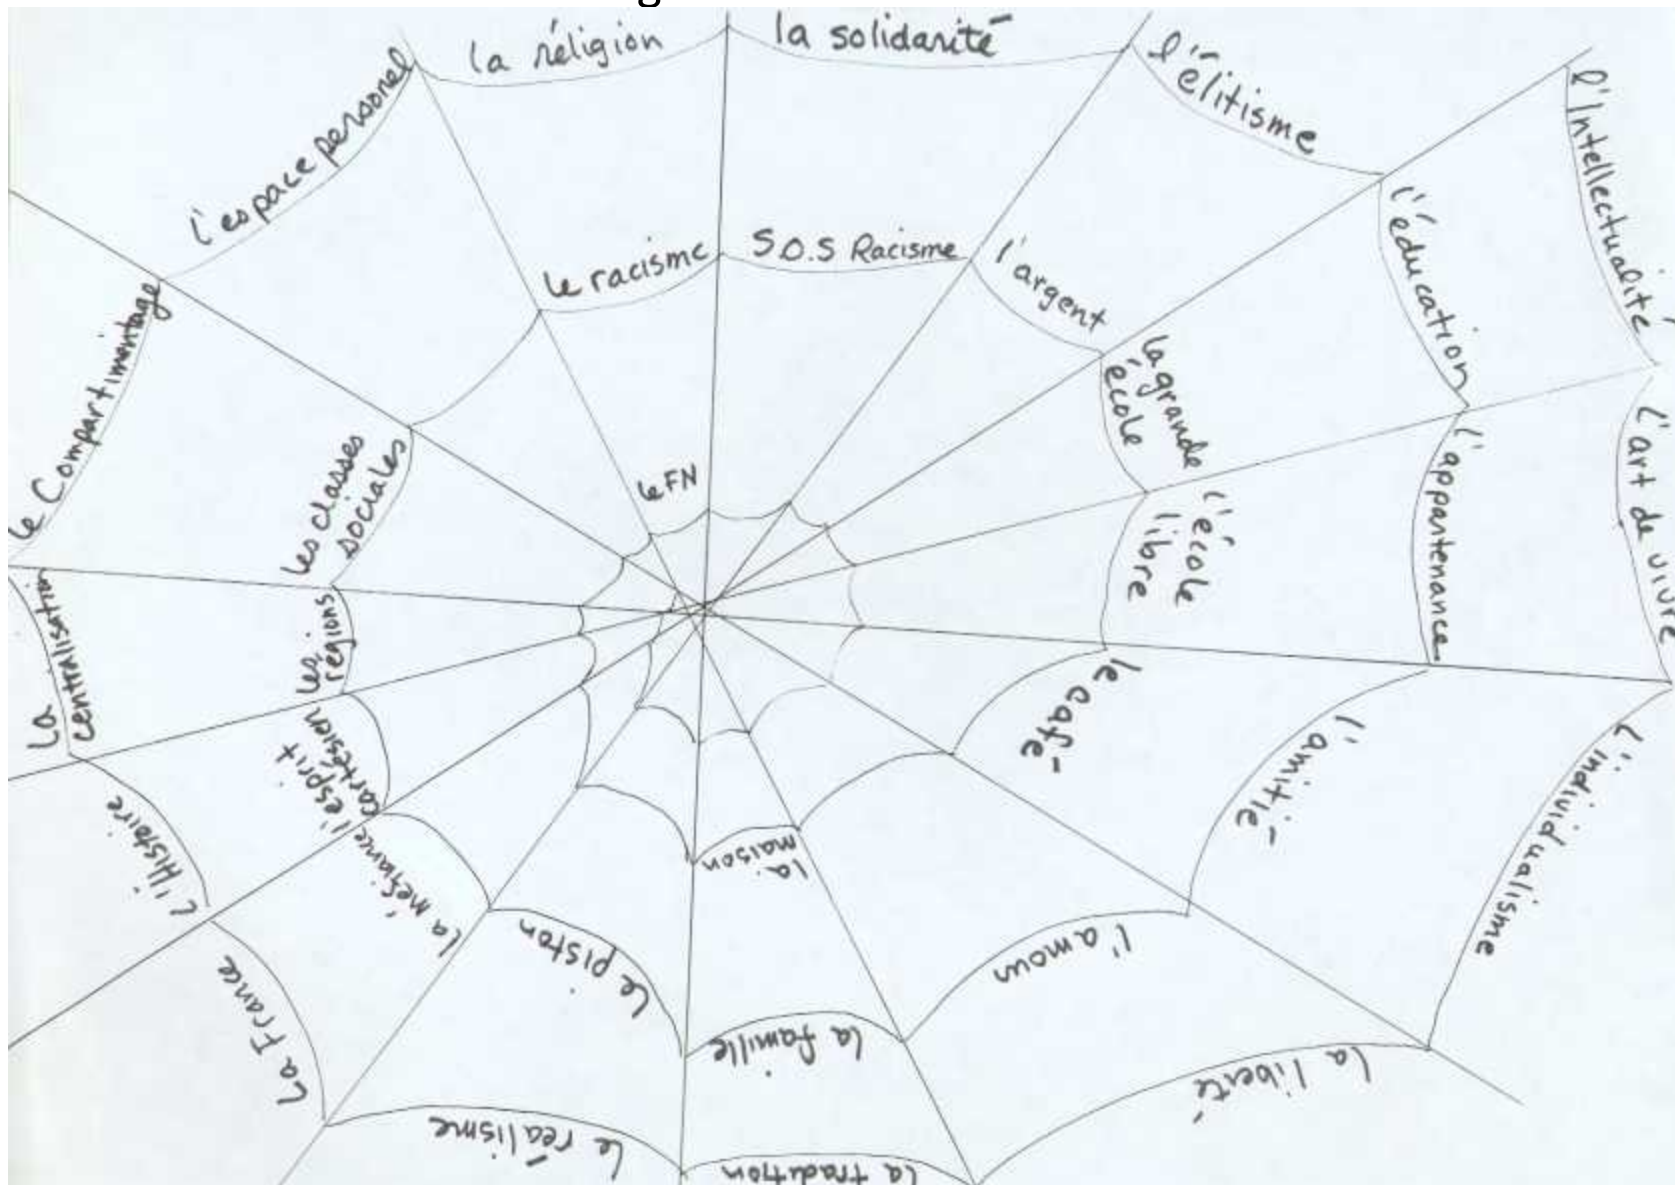 la réligion
la solidarité
l'élitisme
l'Intellectualité
l'espace personel
le racisme
S.O.S Racisme
l'argent
l'éducation
la grande
école
le Compartimentage
les classes
sociales
le FN
l'école
libre
l'appartenance
l'art de vivre
la
centralisation
les
régions
l'ésprit
cartésien
le café
l'amitié
l'individualisme
l'Histoire
la méfiance
le piston
la
maison
l'amour
la France
la famille
la liberté
le réalisme
la tradition